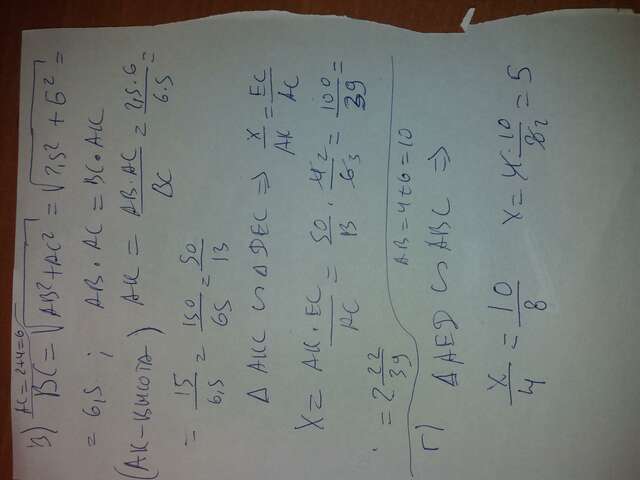 AC = 2+4=6
в) BC = √AB² + AC² = √2,5² + 6² =
= 6,5 ; AB · AC = BC · AK
(AK – высота) AK = AB · AC / BC = 2,5 · 6 / 6.5 =
= 15 / 6,5 = 150 / 65 = 30 / 13
Δ AKC ∽ Δ DEC ⇒ x / AK = EC / AC
X = AK · EC / AC = 50 / 13 · 4 2 / 6 3 = 100 / 39 =
= 2 22 / 39
AB = 4+6 = 10
г) Δ AED ∽ ABC ⇒
x / 4 = 10 / 8 x = 4 · 10 / 8 2 = 5